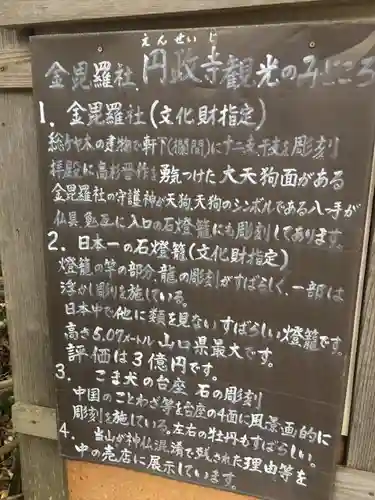 えんせいじ
金毘羅社 円政寺観光のみどころ
1. 金毘羅社(文化財指定)
総ケヤ木の建物で軒下(欄間)に十二支、干支を彫刻
拝殿に高杉晋作を勇気つけた大天狗面がある
金毘羅社の守護神が天狗、天狗のシンボルである八ッ手が
仏具、鬼瓦に入口の石燈籠にも彫刻してあります。
2. 日本一の石燈籠(文化財指定)
燈籠の竿の部分、龍の彫刻がすばらしく、一部は
浮かし彫りを施している。
日本中で他に類を見ないすばらしい燈籠です。
高さ5.07メートル 山口県最大です。
評価は3億円です。
3. こま犬の台座 石の彫刻
中国のことわざ等を台座の4面に風景画的に
彫刻を施している。左右の牡丹もすばらしい。
4. 当山が神仏混淆で残された理由等を
中の売店に展示しています。